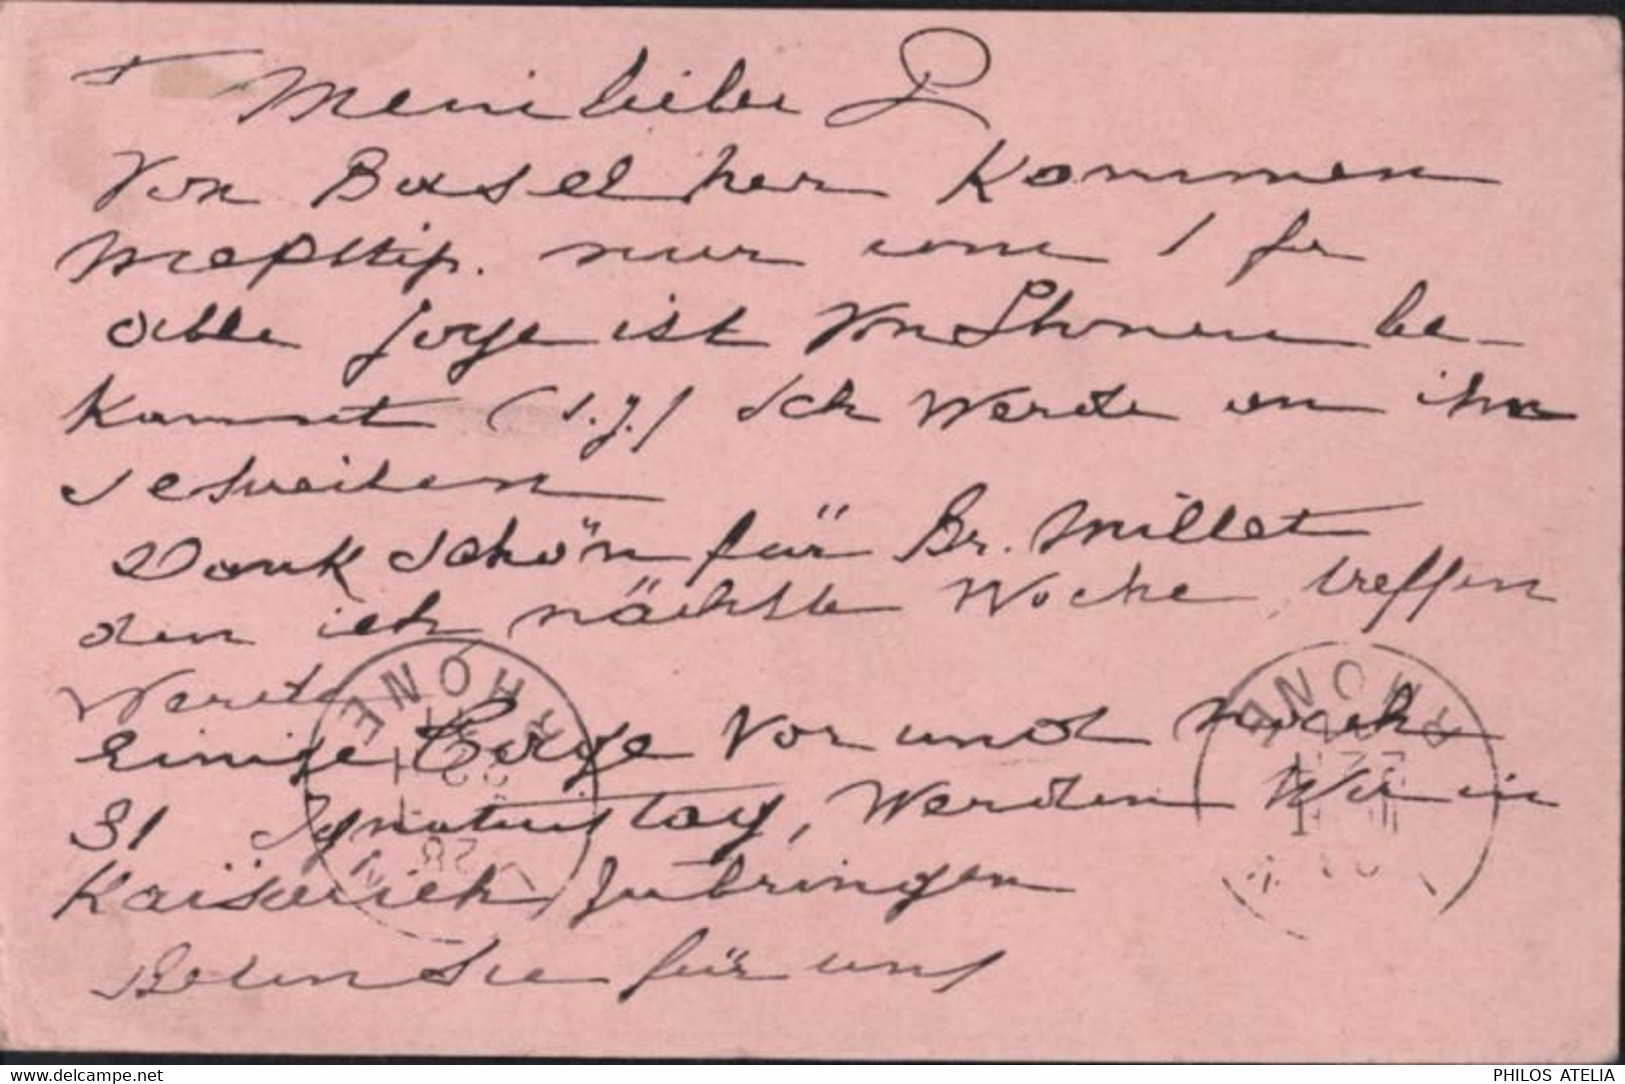 Mein lieber P
Von Basel her Kommen
nur um 1 fr
alle ist Von Ihnen be-
kannt (s.j.) Ich Werde an ihn
schreiben
Dank schön für Br. Millet
den ich nächste Woche treffen
Werde
einige Berge Vor und nach
31 Ignatiustag, Werden Wir in
Kaisereich zubringen
Beten Sie für uns
RHONE
RHONE
www.delcampe.net
PHILOS ATELIA